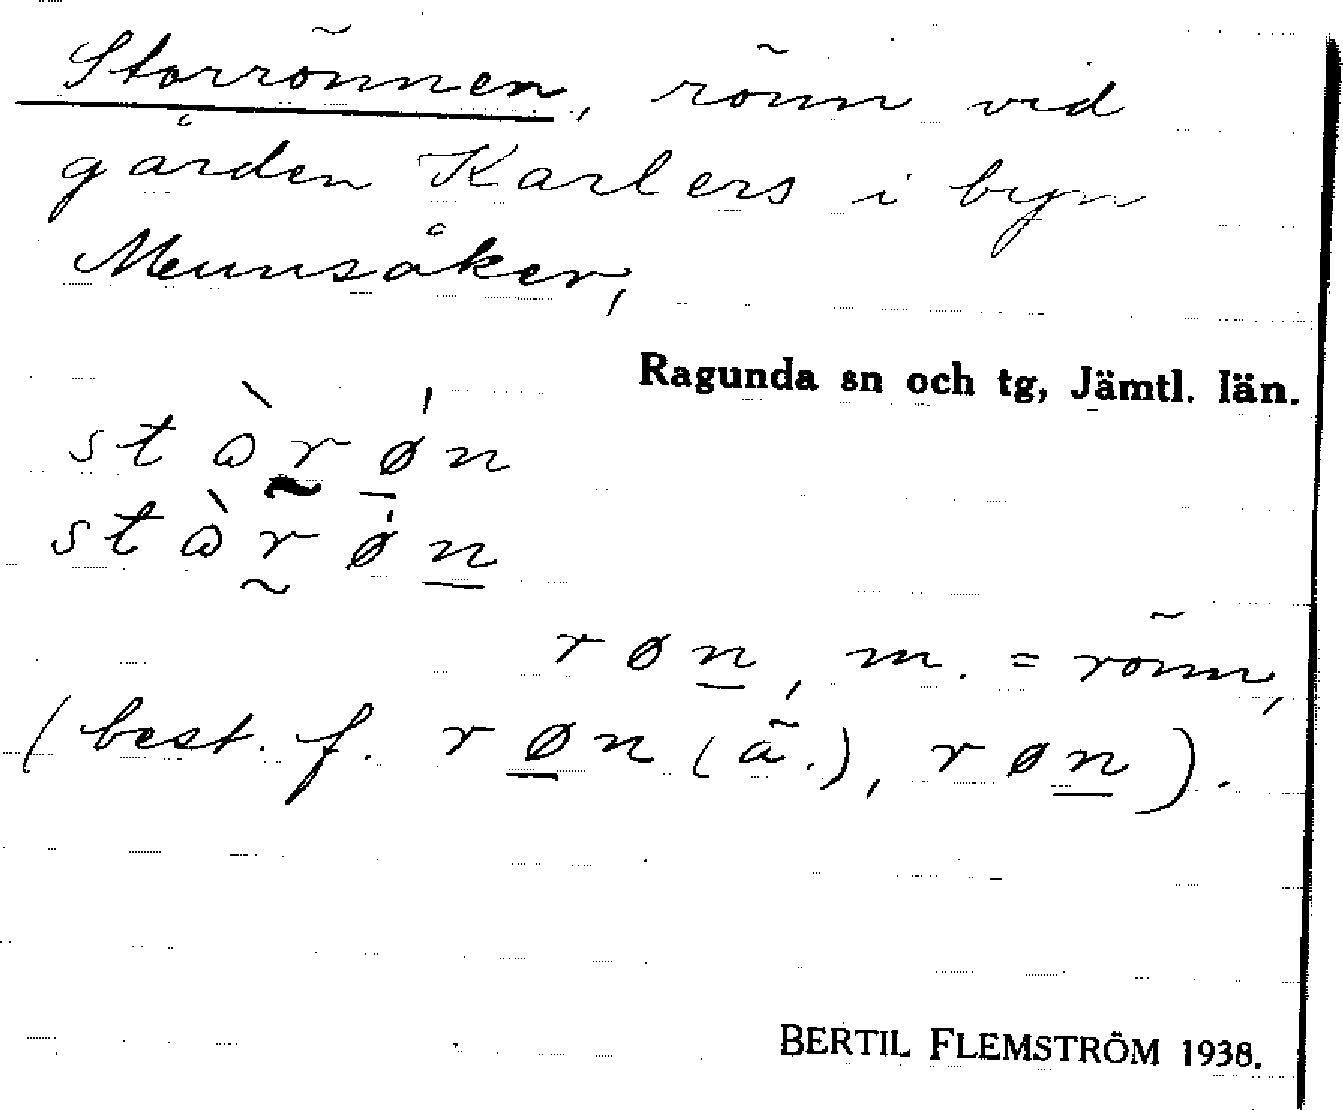 Storrönnen, rönn vid
gården Karlers i byn
Munsåker,
Ragunda sn och tg, Jämtl. län.
stɷ̀rǿn
stɷ̀rǿn
røn, m. = rönn,
(best. f. røn (ä.), røn).
BERTIL FLEMSTRÖM 1938.